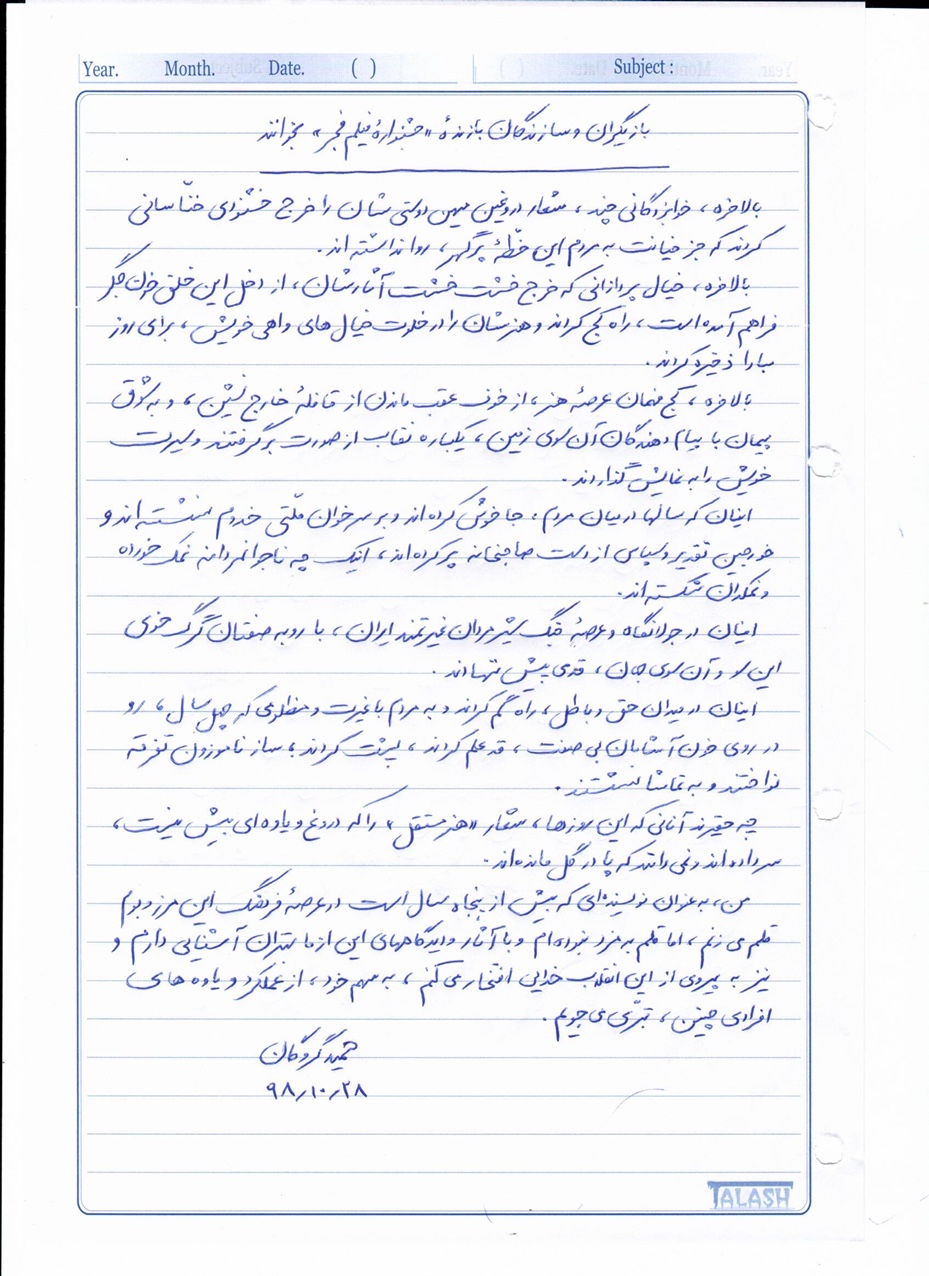 Year. Month. Date. ( ) Subject :
بازیگران و سازندگان بازندهٔ «جشنوارهٔ فیلم فجر» بخوانند
بالاخره، خوابزدگانی چند، شعار دروغین میهن دوستی شان را خرج خشنودی خنّاسانی
کردند که جز خیانت به مردم این خطّهٔ پرگهر، روا نداشته اند.
بالاخره، خیال پردازانی که خرج خشت خشت آثارشان، از دخل این خلق خون جگر
فراهم آمده است، راه کج کردند و هنرشان را در خلوت خیال های واهی خویش، برای روز
مبادا ذخیره کردند.
بالاخره، کج فهمان عرصهٔ هنر، از خوف عقب ماندن از قافلهٔ خارج نشین، و به شوق
پیمان با پیام دهندگان آن سوی زمین، یکباره نقاب از صورت برگرفتند و سیرت
خویش را به نمایش گذاردند.
اینان که سالها در میان مردم، جا خوش کرده اند و بر سر خوان ملّتی خدوم نشسته اند و
خورجین تقدیر و سپاس از دست صاحبخانه پر کرده اند، اینک چه ناجوانمردانه نمک خورده
و نمکدان شکسته اند.
اینان در جولانگاه و عرصهٔ جنگ شیرمردان غیرتمند ایران، با روبه صفتان گرگ خوی
این سو و آن سوی جهان، قدمی پیش ننهاده اند.
اینان در میدان حق و باطل، راه گم کردند و به مردم با غیرت و مظلومی که چهل سال، رو
در روی خون آشامان بی صفت، قد علم کردند، پشت کردند، ساز ناموزون تفرقه
نواختند و به تماشا نشستند.
چه حقیرند آنانی که این روزها، شعار «هنر مستقل» را که دروغ و یاوه ای بیش نیست،
سر داده اند و نمی دانند که پا در گل مانده اند.
من، به عنوان نویسنده ای که بیش از پنجاه سال است در عرصهٔ فرهنگ این مرز و بوم
قلم می زنم، اما قلم به مزد نبوده ام و با آثار و دیدگاههای این ازما بهتران آشنایی دارم و
نیز به پیروی از این انقلاب خدایی افتخار می کنم، به سهم خود، از عملکرد و یاوه های
افرادی چنین، تبرّی می جویم.
حمید گروگان
۹۸/۱۰/۲۸
TALASH